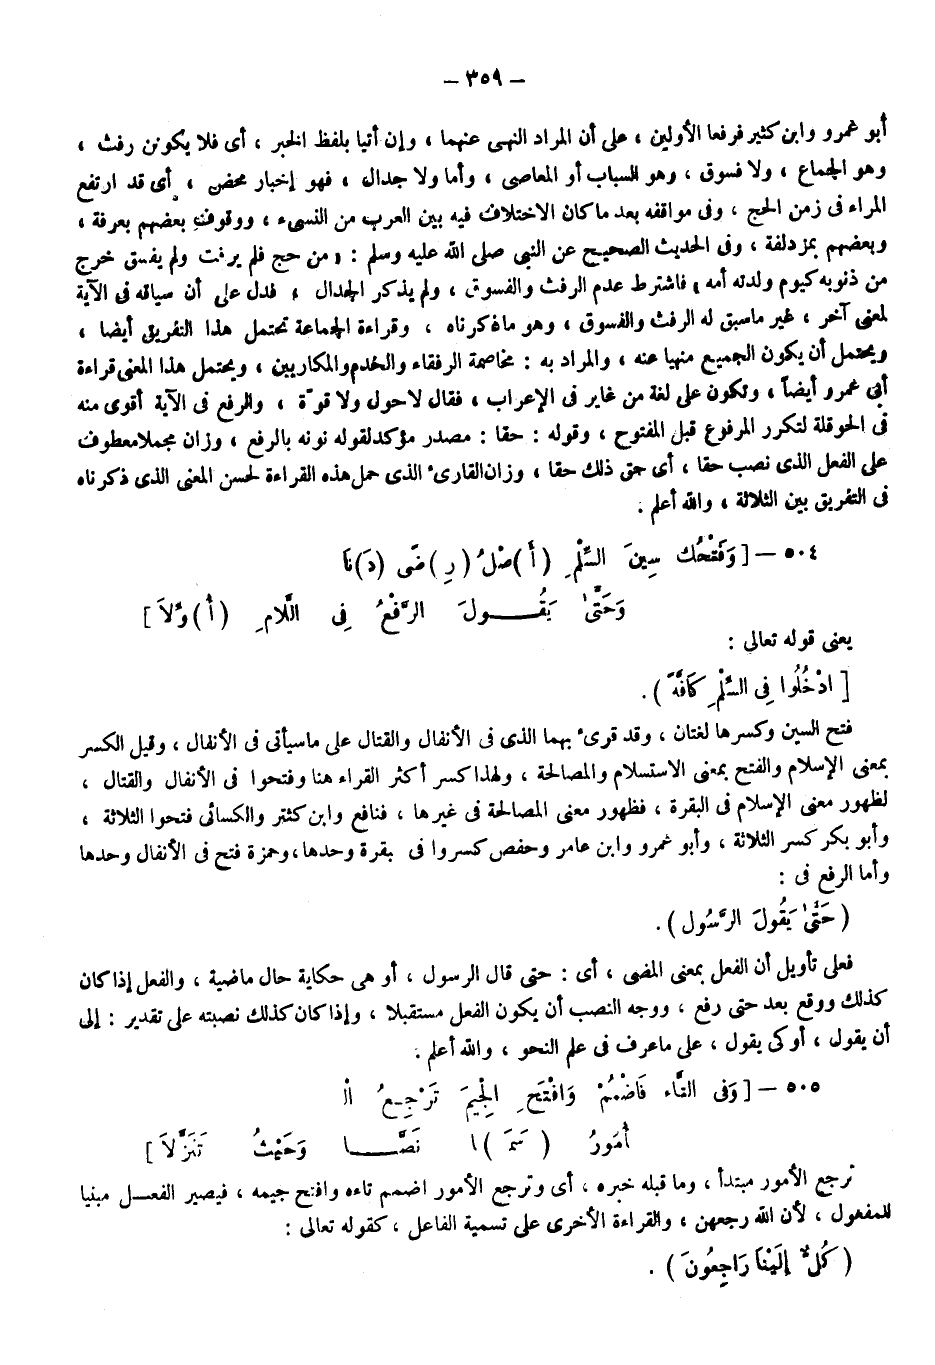 – ٣٥٩ –
أبو عمرو وابن كثير فرفعا الأولين ، على أن المراد النهى عنهما ، وإن أتيا بلفظ الخبر ، أى فلا يكونن رفث ،
وهو الجماع ، ولا فسوق ، وهو السباب أو المعاصى ، وأما ولا جدال ، فهو إخبار محض ، أى قد ارتفع
المراء فى زمن الحج ، وفى مواقفه بعد ما كان الاختلاف فيه بين العرب من النسىء ، ووقوف بعضهم بعرفة ،
وبعضهم بمزدلفة ، وفى الحديث الصحيح عن النبى صلى الله عليه وسلم : « من حج فلم يرفث ولم يفسق خرج
من ذنوبه كيوم ولدته أمه » فاشترط عدم الرفث والفسوق ، ولم يذكر الجدال ، فدل على أن سياقه فى الآية
لمعنى آخر ، غير ماسبق له الرفث والفسوق ، وهو ماذكرناه ، وقراءة الجماعة تحتمل هذا التفريق أيضا ،
ويحتمل أن يكون الجميع منهيا عنه ، والمراد به : مخاصمة الرفقاء والخدم والمكاريين ، ويحتمل هذا المعنى قراءة
أبى عمرو أيضاً ، وتكون على لغة من غاير فى الإعراب ، فقال لاحول ولا قوّة ، والرفع فى الآية أقوى منه
فى الحوقلة لتكرر المرفوع قبل المفتوح ، وقوله : حقا : مصدر مؤكد لقوله نونه بالرفع ، وزان مجملا معطوف
على الفعل الذى نصب حقا ، أى حق ذلك حقا ، وزان القارئ الذى حمل هذه القراءة لحسن المعنى الذى ذكرناه
فى التفريق بين الثلاثة ، والله أعلم .
٥٠٤ – [ وَفَتْحُكَ سِينَ السِّلْمِ (أَ)صْلُ (رِ)ضًى (دَ)نَا
وَحَتَّىٰ يَقُـــولَ الرَّفْعُ فِى اللَّامِ (أُ)وِّلاَ ]
يعنى قوله تعالى :
[ ادْخُلُوا فِى السِّلْمِ كَافَّةً ) .
فتح السين وكسرها لغتان ، وقد قرئ بهما الذى فى الأنفال والقتال على ماسيأتى فى الأنفال ، وقيل الكسر
بمعنى الإسلام والفتح بمعنى الاستسلام والمصالحة ، ولهذا كسر أكثر القراء هنا وفتحوا فى الأنفال والقتال ،
لظهور معنى الإسلام فى البقرة ، فظهور معنى المصالحة فى غيرها ، فنافع وابن كثير والكسائى فتحوا الثلاثة ،
وأبو بكر كسر الثلاثة ، وأبو عمرو وابن عامر وحفص كسروا فى بقرة وحدها ، وحمزة فتح فى الأنفال وحدها
وأما الرفع فى :
( حَتَّىٰ يَقُولَ الرَّسُول ) .
فعلى تأويل أن الفعل بمعنى المضى ، أى : حتى قال الرسول ، أو هى حكاية حال ماضية ، والفعل إذا كان
كذلك ووقع بعد حتى رفع ، ووجه النصب أن يكون الفعل مستقبلا ، وإذا كان كذلك نصبته على تقدير : إلى
أن يقول ، أو كى يقول ، على ماعرف فى علم النحو ، والله أعلم .
٥٠٥ – [ وَفى التَّاء فَاضْمُمْ وَافْتَحِ الْجِيمَ تَرْجِعُ الْ
أُمُورُ ( سَمَ )ا نَصًّـــا وَحَيْثُ تَنَزَّلاَ ]
ترجع الأمور مبتدأ ، وما قبله خبره ، أى وترجع الأمور اضمم تاءه وافتح جيمه ، فيصير الفعــل مبنيا
للمفعول ، لأن الله رجعهن ، والقراءة الأخرى على تسمية الفاعل ، كقوله تعالى :
( كُلٌّ إِلَيْنَا رَاجِعُونَ ) .